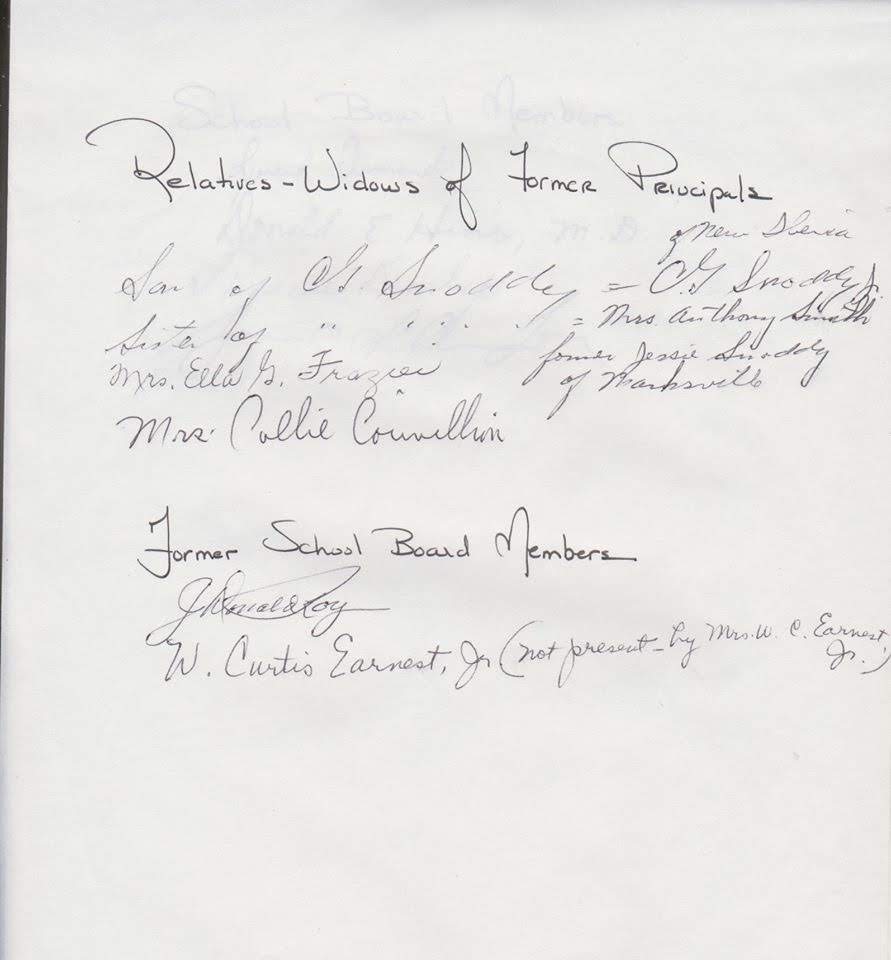 Relatives-Widows of Former Principals
of New Iberia
Son of C.G. Snoddy = C.G Snoddy Jr.
Sister of " " " = Mrs. Anthony Smith
former Jessie Snoddy
Mrs. Ella G. Frazier
of Marksville
Mrs. Collie Couvillion
Former School Board Members
J Donald Roy
W. Curtis Earnest, Jr (not present - by Mrs. W. C. Earnest Jr.)
School Board Members
Donald E Hines, M.D.